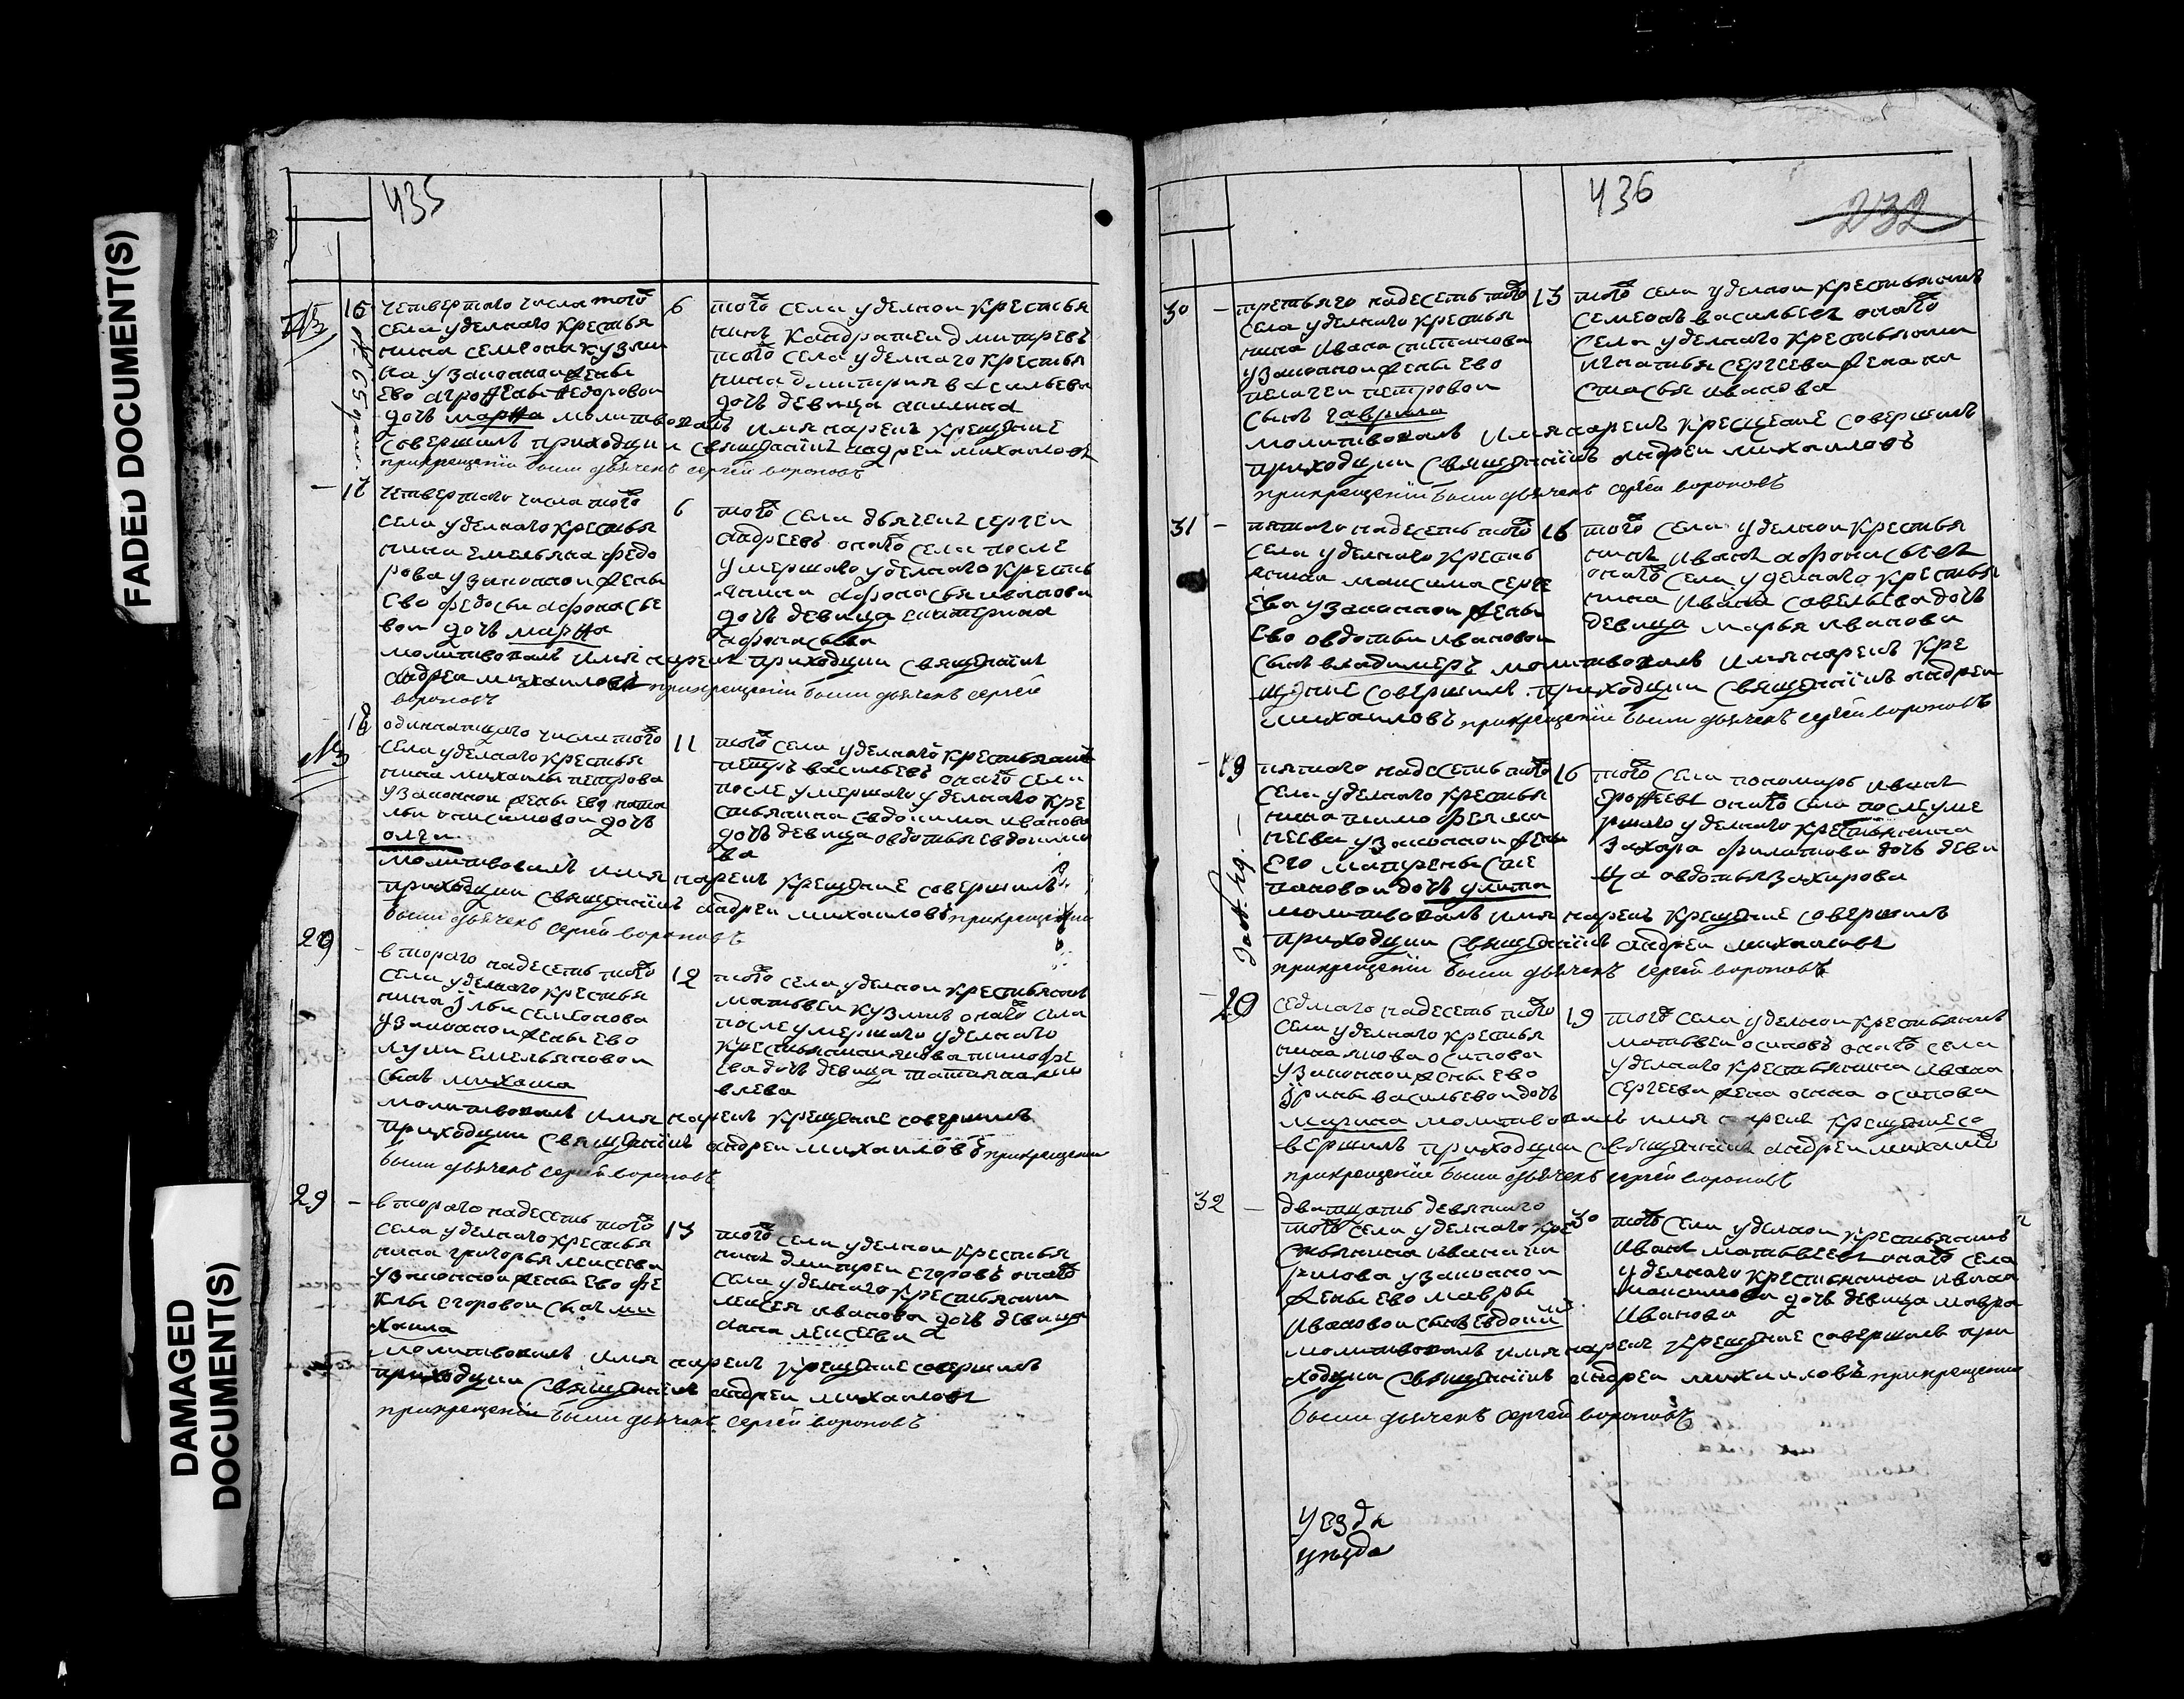 FADED DOCUMENT(S)
DAMAGED
DOCUMENT(S)
435
15
четвертаго числа того
села уделнаго крестья
нина семиона кузми
на у законной жены
ево агрофены федоровой
дочь марфа молитвовалъ имя нарекъ крещение
совершилъ приходции священникъ андреи михаиловъ
при крещении былъ дьячекъ сергей вороновъ
6
того села уделнои крестья
нинъ кандратеи дмитревъ
того села уделнаго крестья
нина дмитрия васильева
дочь девица акилина
17
четвертаго числа того
села уделнаго крестья
нина емельяна федо
рова у законнои жены
ево федосьи афонасье
вои дочь марфа
молитвовалъ имя нарекъ приходции священникъ
андреи михаиловъ при крещении былъ дьячекъ сергей
вороновъ
6
того села дьячекъ сергеи
андреевъ онаго села после
умершаго уделнаго кресть
янина афонасья иванова
дочь девица екатерина
афонасьева
18
одинацатаго числа того
села уделнаго крестья
нина михаилы петрова
у законнои жены ево ната
льи анисимовои дочь
олга
молитвовалъ имя нарекъ крещение совершилъ
приходции священникъ андреи михаиловъ при крещении
былъ дьячекъ сергей вороновъ
11
того села уделнаго крестьянинъ
петръ васильевъ онаго села
после умершаго уделнаго кре
стьянина евдокима иванова
дочь девица овдотья евдокимо
ва
втораго надесеть того
села уделнаго крестья
нина ильи семионова
у законнои жены ево
лукии емельяновои
сынъ михаила
молитвовалъ имя нарекъ крещение совершилъ
приходции священникъ андреи михаиловъ при крещении
былъ дьячекъ сергей вороновъ
12
того села уделнои крестьянинъ
матьвеи кузминъ онаго села
после умершаго уделнаго
крестьянина якова тимофе
ева дочь девица татьяна яко
влева
29
втораго надесеть того
села уделнаго крестья
нина григорья лексеева
у законнои жены ево фе
клы егоровои сынъ ми
хаила
молитвовалъ имя нарекъ крещение совершилъ
приходции священникъ андреи михаиловъ
при крещении былъ дьячекъ сергей вороновъ
13
того села уделнои крестья
нинъ дмитреи егоровъ онаго
села уделнаго крестьянина
лексея иванова дочь девица
анна лексеева
436
232
30
третьяго надесеть того
села уделнаго крестья
нина ивана степанова
у законнои жены ево
пелагеи петровои
сынъ гаврила
молитвовалъ имя нарекъ крещение совершилъ
приходции священникъ андреи михаиловъ
при крещении былъ дьячекъ сергей вороновъ
13
того села уделнои крестьянинъ
семионъ васильевъ онаго
села уделнаго крестьянина
игнатья сергеева жена на
стасья иванова
31
пятаго надесеть того
села уделнаго кресть
янина максима серге
ева у законнои жены
ево овдотьи ивановои
сынъ владимеръ молитвовалъ имя нарекъ кре
щение совершилъ приходции священникъ андреи
михаиловъ при крещении былъ дьячекъ сергей вороновъ
16
того села уделнои крестья
нинъ иванъ афонасьевъ
онаго села уделнаго крестья
нина ивана савельева дочь
девица марья иванова
19
пятаго надесеть того
села уделнаго крестья
нина тимофея ма
твеева у законнои жены
его матрены сте
пановои дочь улита
молитвовалъ имя нарекъ крещение совершилъ
приходции священникъ андреи михаиловъ
при крещении былъ дьячекъ сергей вороновъ
16
того села пономарь иванъ
ерофеевъ онаго села после уме
ршаго уделнаго крестьянина
захара филатова дочь деви
ца овдотья захарова
20
седмаго надесеть того
села уделнаго крестья
нина якова осипова
у законнои жены ево
ирины васильевои дочь
марина молитвовалъ имя нарекъ крещение со
вершилъ приходции священникъ андреи михаило
при крещении былъ дьячекъ сергей вороновъ
19
того села уделнои крестьянинъ
матьвеи осиповъ онаго села
уделнаго крестьянина ивана
сергеева жена анна осипова
32
дватцать девятаго
того села уделнаго кре
стьянина ивана
у законнои
жены ево мавры
ивановои сынъ евдоким
молитвовалъ имя нарекъ крещение совершилъ при
ходции священникъ андреи михаиловъ при крещении
былъ дьячекъ сергей вороновъ
30
того села уделнои крестьянинъ
иванъ матьвеевъ онаго села
уделнаго крестьянина ивана
максимова дочь девица мавра
иванова